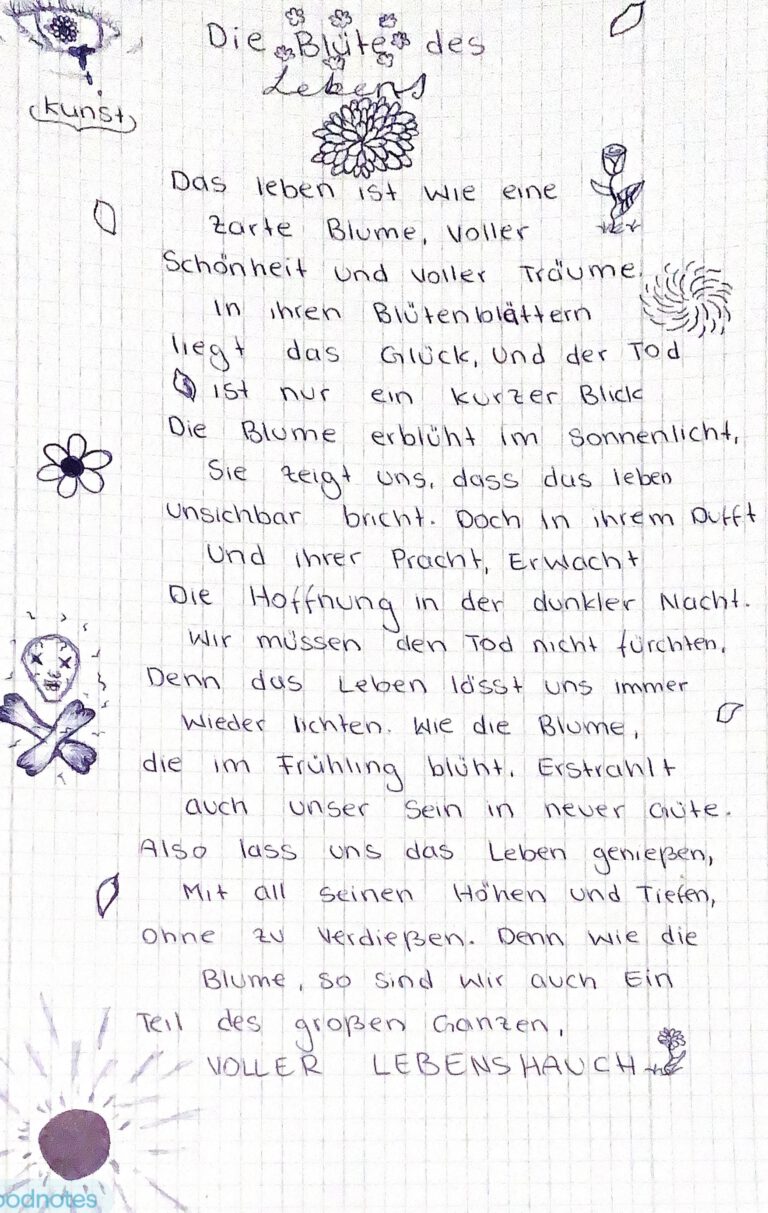 Die Blüte des
Lebens
Kunst
Das leben ist wie eine
zarte Blume, voller
Schönheit und voller Träume.
In ihren Blütenblättern
liegt das Glück, Und der Tod
ist nur ein kurzer Blick
Die Blume erblüht im Sonnenlicht,
Sie zeigt uns, dass das leben
unsichbar bricht. Doch in ihrem Dufft
Und ihrer Pracht, Erwacht
Die Hoffnung in der dunkler Nacht.
Wir müssen den Tod nicht fürchten,
Denn das Leben lässt uns immer
wieder lichten. Wie die Blume,
die im Frühling blüht, Erstrahlt
auch unser Sein in neuer Güte.
Also lass uns das Leben genießen,
Mit all seinen Höhen und Tiefen,
ohne zu verdießen. Denn wie die
Blume, so sind wir auch Ein
Teil des großen Ganzen,
VOLLER LEBENSHAUCH
oodnotes